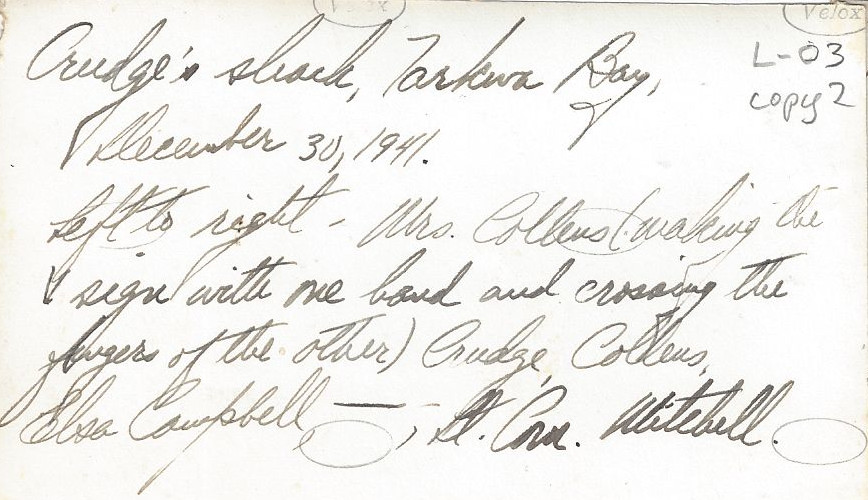 Velox
Velox
L-03
copy 2
Crudge's shack, Tarkwa Bay,
December 30, 1941.
Left to right - Mrs. Collens (making the
sign with one hand and crossing the
fingers of the other) Crudge, Collens,
Elsa Campbell — , Lt. Com. Mitchell.